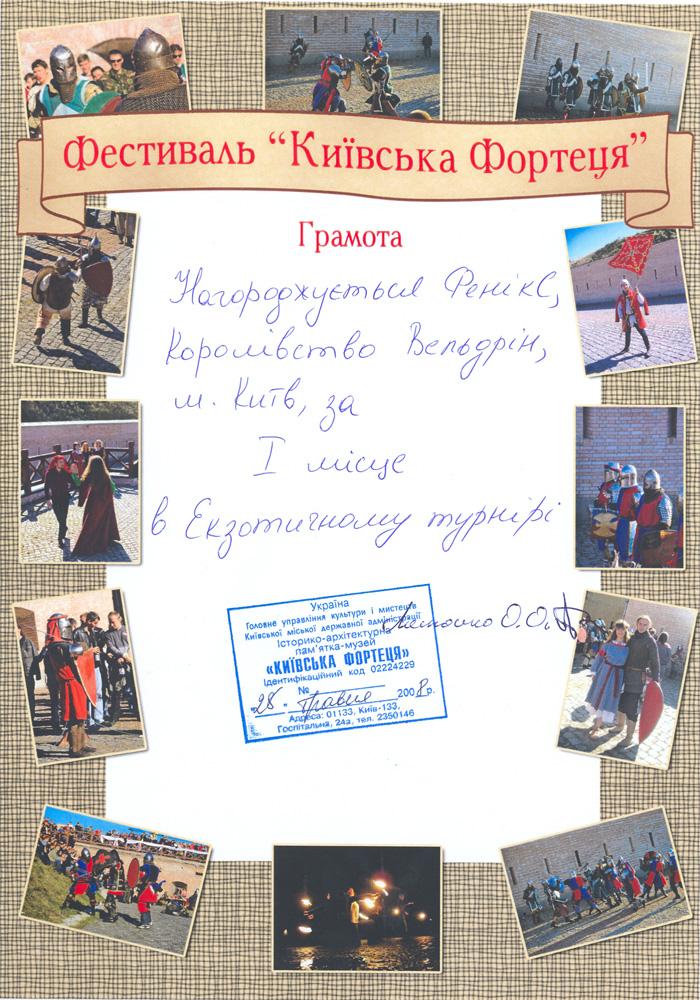 Фестиваль “Київська Фортеця”
Грамота
Нагороджується Фенікс,
Королівство Вельдрін,
м. Київ, за
I місце
в Екзотичному турнірі
Україна
Головне управління культури і мистецтв
Київської міської державної адміністрації
Історико-архітектурна
пам'ятка-музей
«КИЇВСЬКА ФОРТЕЦЯ»
Ідентифікаційний код 02224229
№
"25" травня 2008р.
Адреса: 01133, Київ-133,
Госпітальна, 24а, тел. 2350146
О.О.